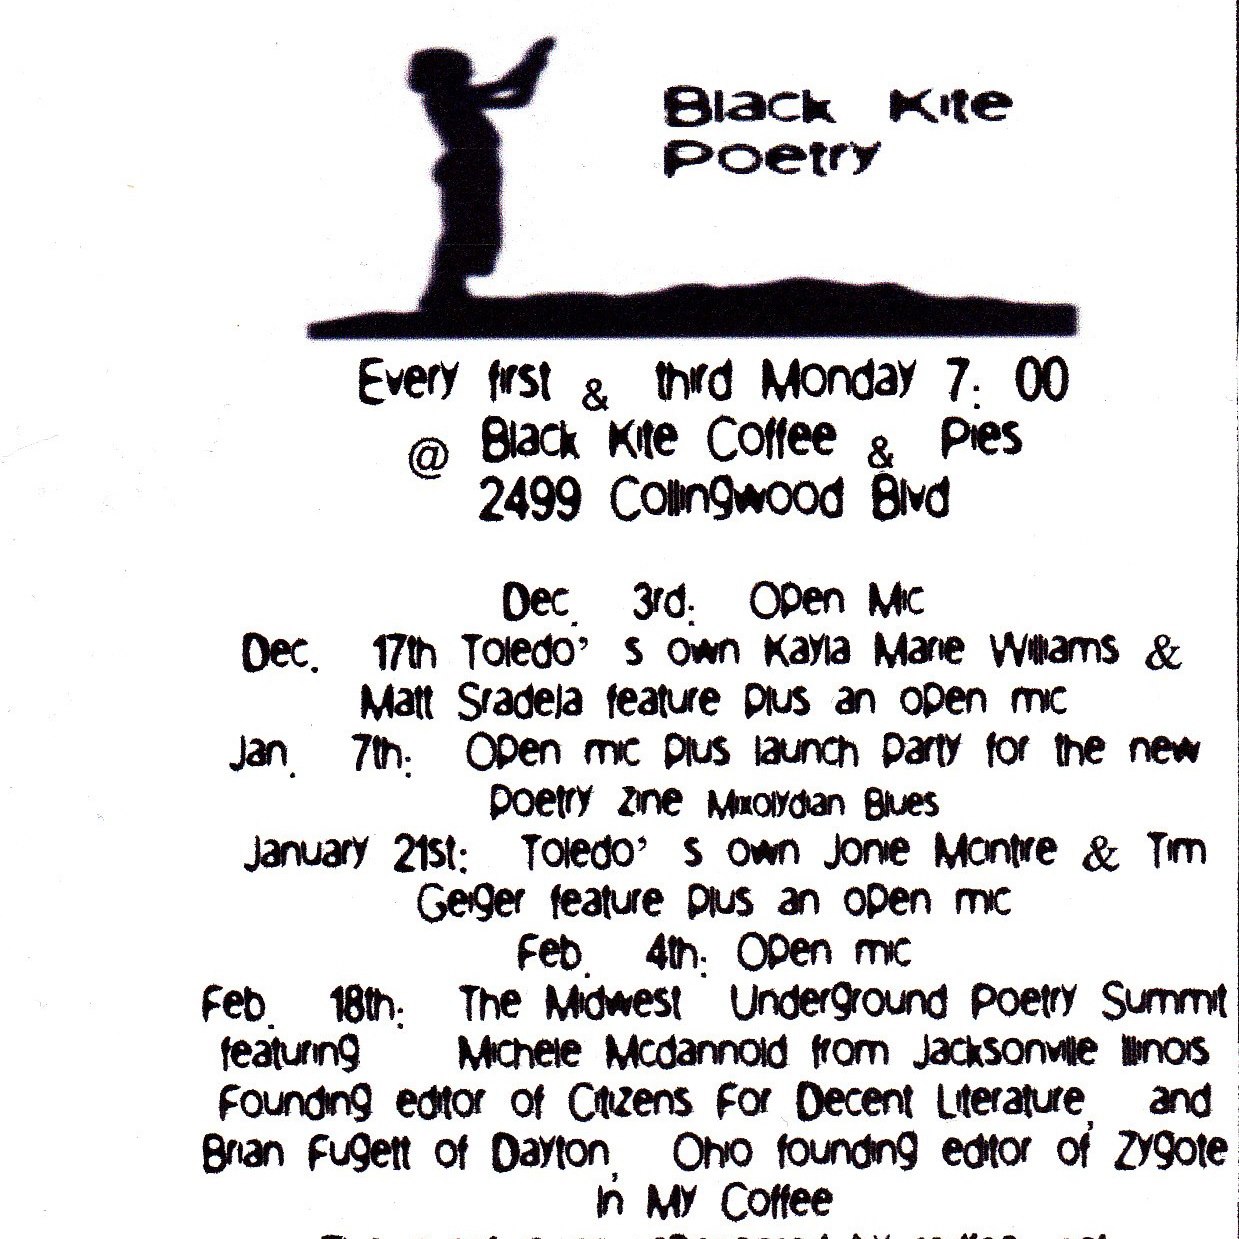 Black Kite
Poetry
Every first & third Monday 7: 00
@ Black Kite Coffee & Pies
2499 Collingwood Blvd
Dec. 3rd: Open Mic
Dec. 17th Toledo's own Kayla Marie Williams &
Matt Sradeja feature plus an open mic
Jan. 7th: Open mic plus launch party for the new
poetry zine Mixolydian Blues
January 21st: Toledo's own Jonie McIntire & Tim
Geiger feature plus an open mic
Feb. 4th: Open mic
Feb. 18th: The Midwest Underground Poetry Summit
featuring Michele Mcdannold from Jacksonville Illinois
Founding editor of Citizens For Decent Literature, and
Brian Fugett of Dayton, Ohio founding editor of Zygote
in My Coffee